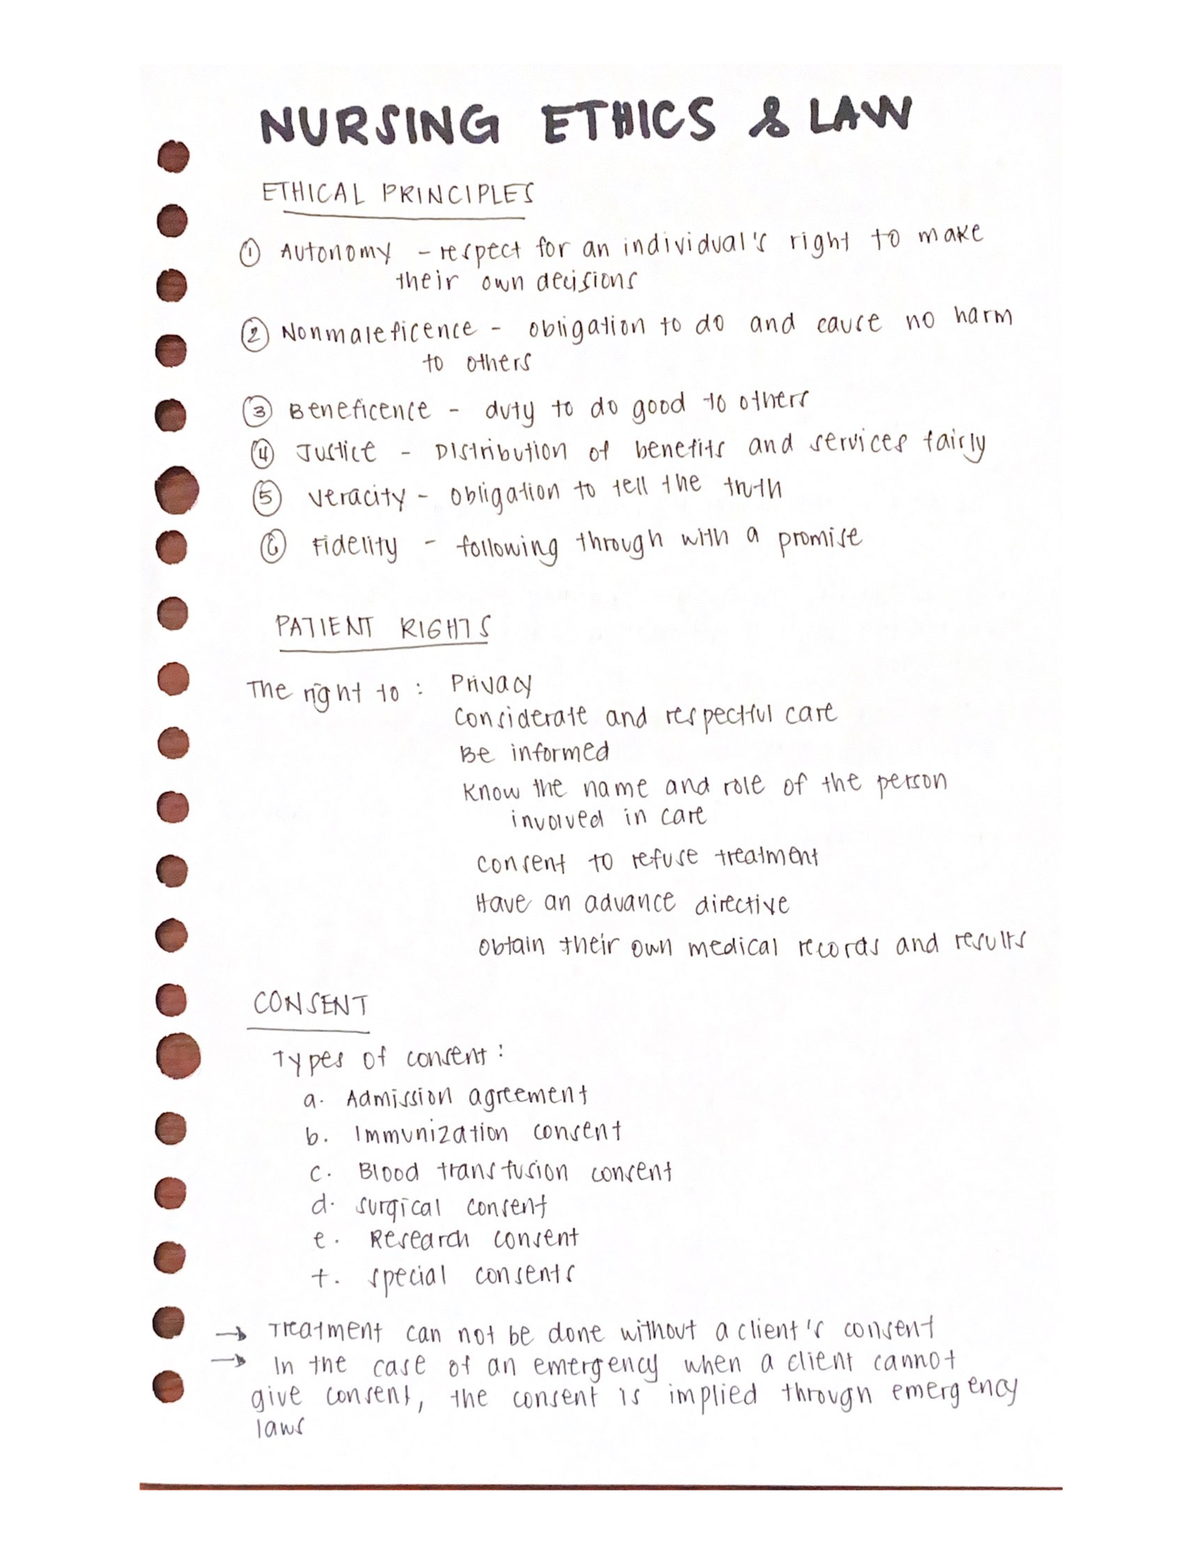 NURSING ETHICS & LAW
ETHICAL PRINCIPLES
① Autonomy - respect for an individual's right to make
their own decisions
② Nonmaleficence - obligation to do and cause no harm
to others
③ Beneficence - duty to do good to others
④ Justice - Distribution of benefits and services fairly
⑤ Veracity - obligation to tell the truth
⑥ Fidelity - following through with a promise
PATIENT RIGHTS
The right to : Privacy
Considerate and respectful care
Be informed
Know the name and role of the person
involved in care
Consent to refuse treatment
Have an advance directive
Obtain their own medical records and results
CONSENT
Types of consent :
a. Admission agreement
b. Immunization consent
c. Blood transfusion consent
d. Surgical consent
e. Research consent
f. Special consents
→ Treatment can not be done without a client's consent
→ In the case of an emergency when a client cannot
give consent, the consent is implied through emergency
laws